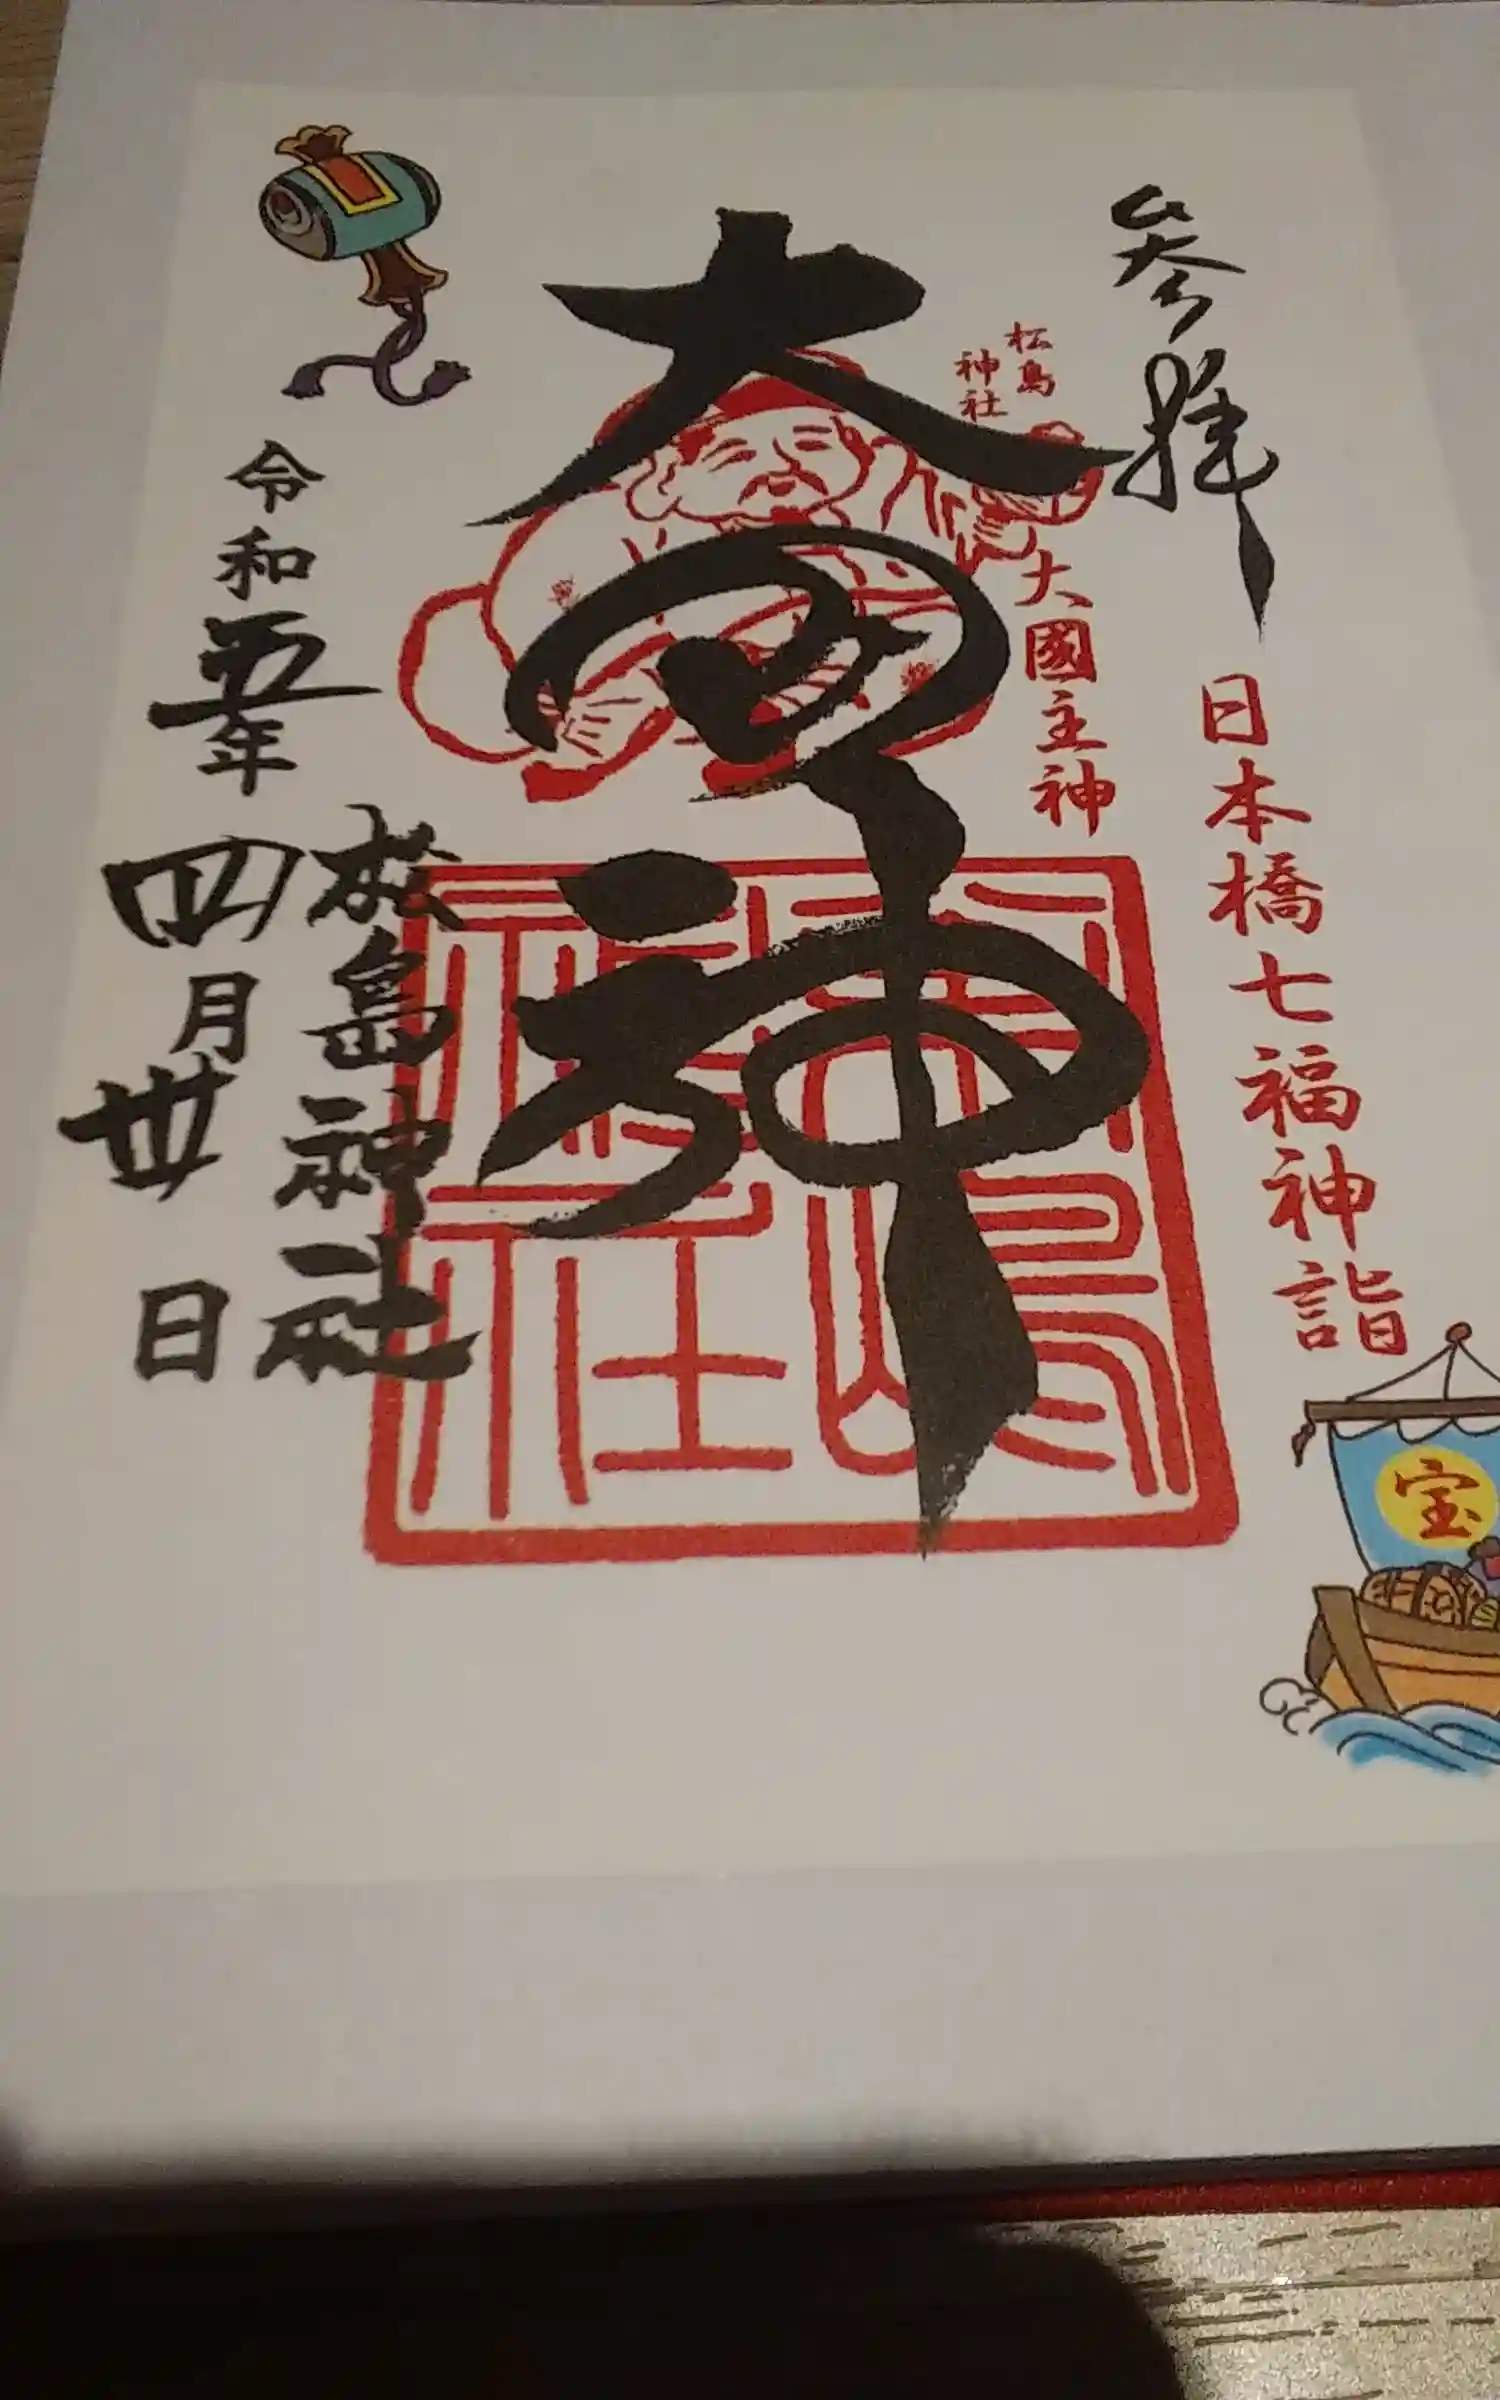 参拝
日本橋七福神詣
松島
神社
大國主神
大鳥神
松島神社
令和五年
四月卅日
宝